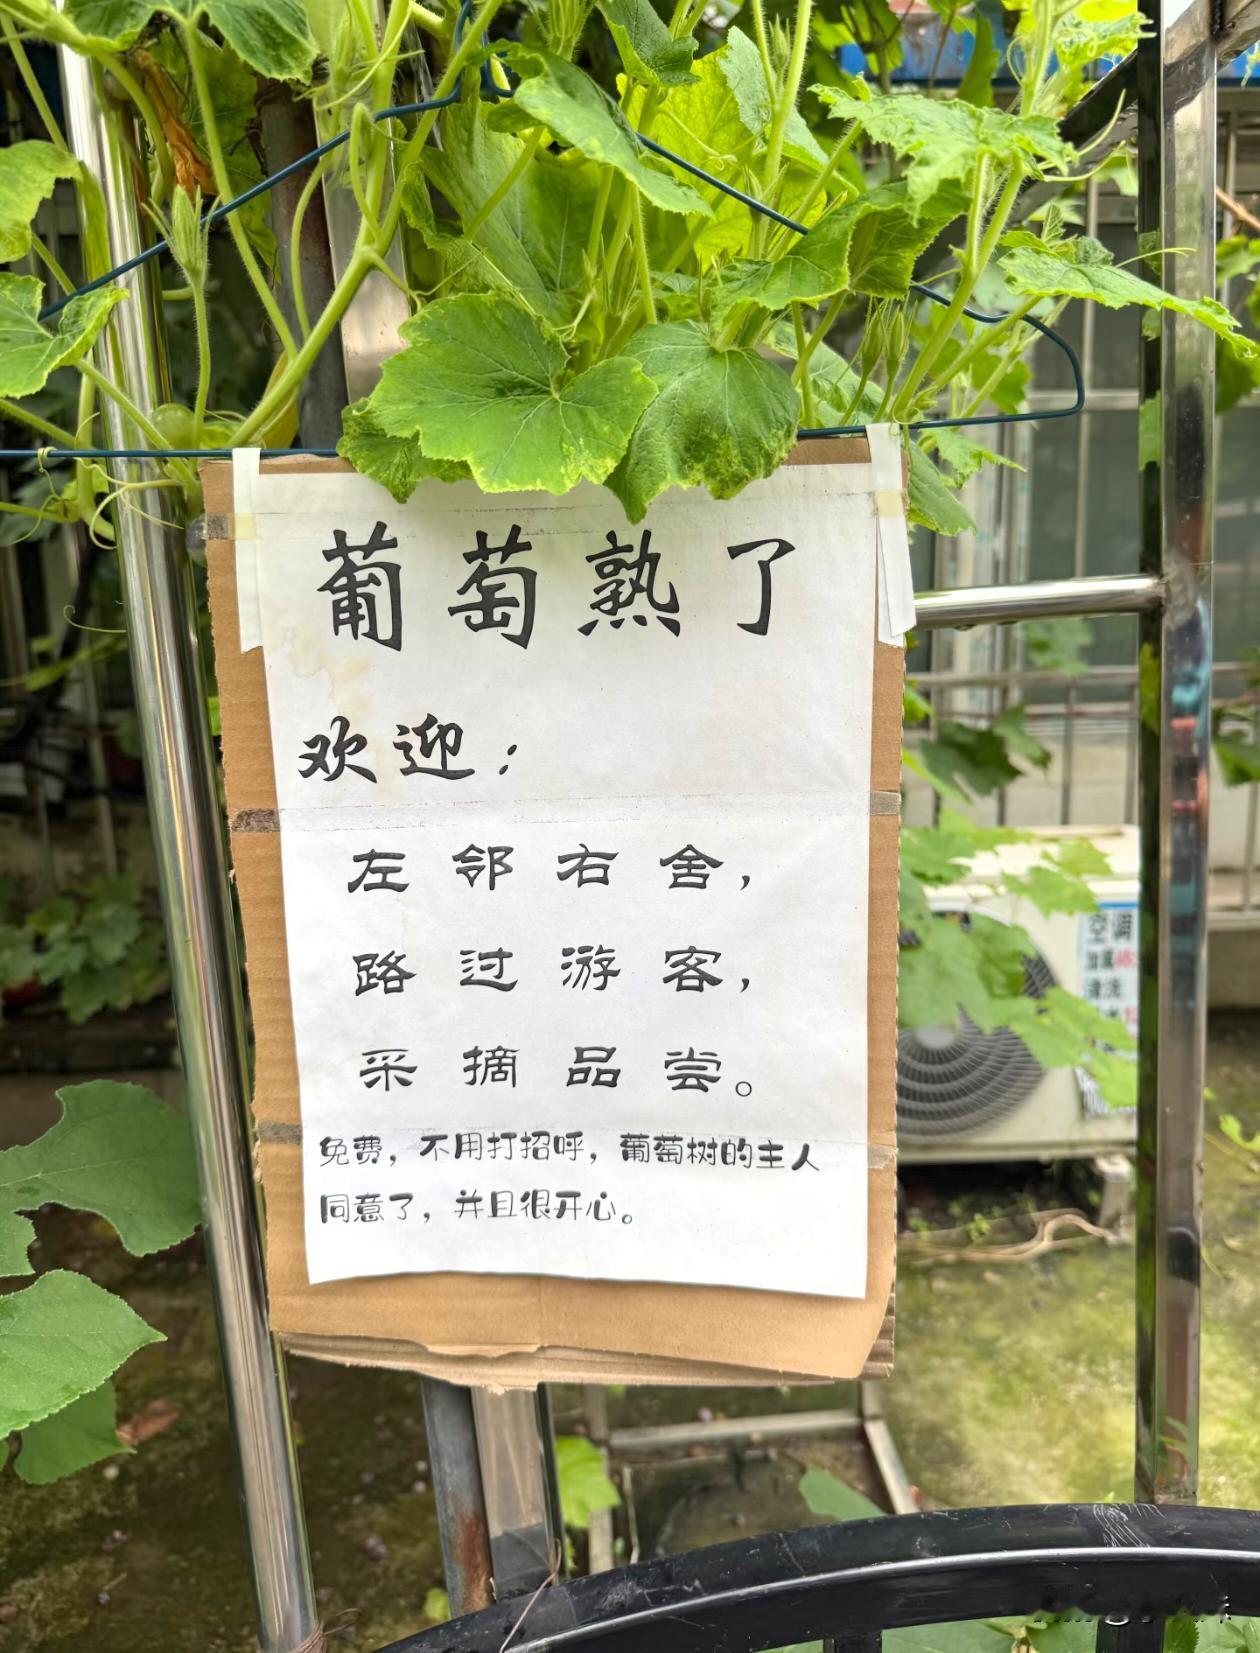 葡萄熟了
欢迎：
左邻右舍，
路过游客，
采摘品尝。
免费，不用打招呼，葡萄树的主人
同意了，并且很开心。
空调
加氟
清洗